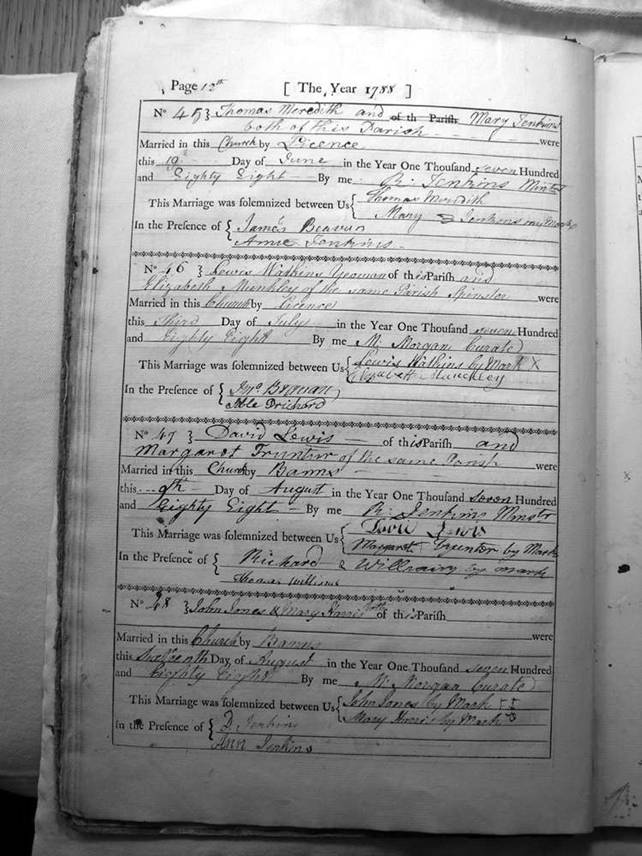 Page 12th [ The Year 1788 ]
No 45 } Thomas Meredith and of th Parish Mary Jenkins
both of this Parish were
Married in this Church by Licence
this 19 Day of June in the Year One Thousand seven Hundred
and Eighty Eight By me R. Jenkins Minstr
This Marriage was solemnized between Us { Thomas Meredith
Mary Jenkins my Mark
In the Presence of { James Beavan
Anne Jenkins
No 46 } Lewis Watkins Yeoman of this Parish and
Elizabeth of the same Parish Spinster were
Married in this Church by Licence
this Third Day of July in the Year One Thousand seven Hundred
and Eighty Eight By me M: Morgan Curate
This Marriage was solemnized between Us { Lewis Watkins by Mark X
Elizabeth
In the Presence of { Jno
Able Prichard
No 47 } David Lewis of this Parish and
Margaret of the same Parish were
Married in this Church by Banns
this 9th Day of August in the Year One Thousand seven Hundred
and Eighty Eight By me R. Jenkins Minstr
This Marriage was solemnized between Us { Lewis
Margaret by Mark
In the Presence of { Richard by mark
Thomas Williams
No 48 } John Jones & Mary both of this Parish
were
Married in this Church by Banns
this Sixteenth Day of August in the Year One Thousand seven Hundred
and Eighty Eight By me M: Morgan Curate
This Marriage was solemnized between Us { John Jones by Mark
Mary by Mark
In the Presence of { D. Jenkins
Ann Jenkins